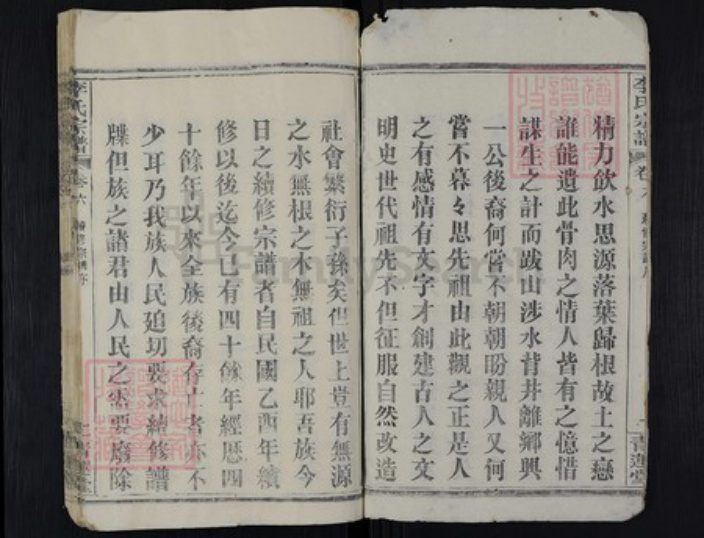 精力飲水思源落葉歸根故土之戀
誰能遺此骨肉之情人皆有之憶惜
謀生之計而跋山涉水背井離鄉與
一公後裔何嘗不朝朝盼親人又何
嘗不暮々思先祖由此觀之正是人
之有感情有文字才創建古人之文
明史世代祖先不但征服自然改造
社會繁衍子孫矣但世上豈有無源
之水無根之木無祖之人耶吾族今
日之續修宗譜者自民國乙酉年續
修以後迄今已有四十餘年經歷四
十餘年以來全族後裔存亡者亦不
少耳乃我族人民迫切要求續修譜
牒但族之諸君由人民之需要
除
李氏宗譜
卷六
青蓮堂
李氏宗譜
卷六
FamilySearch